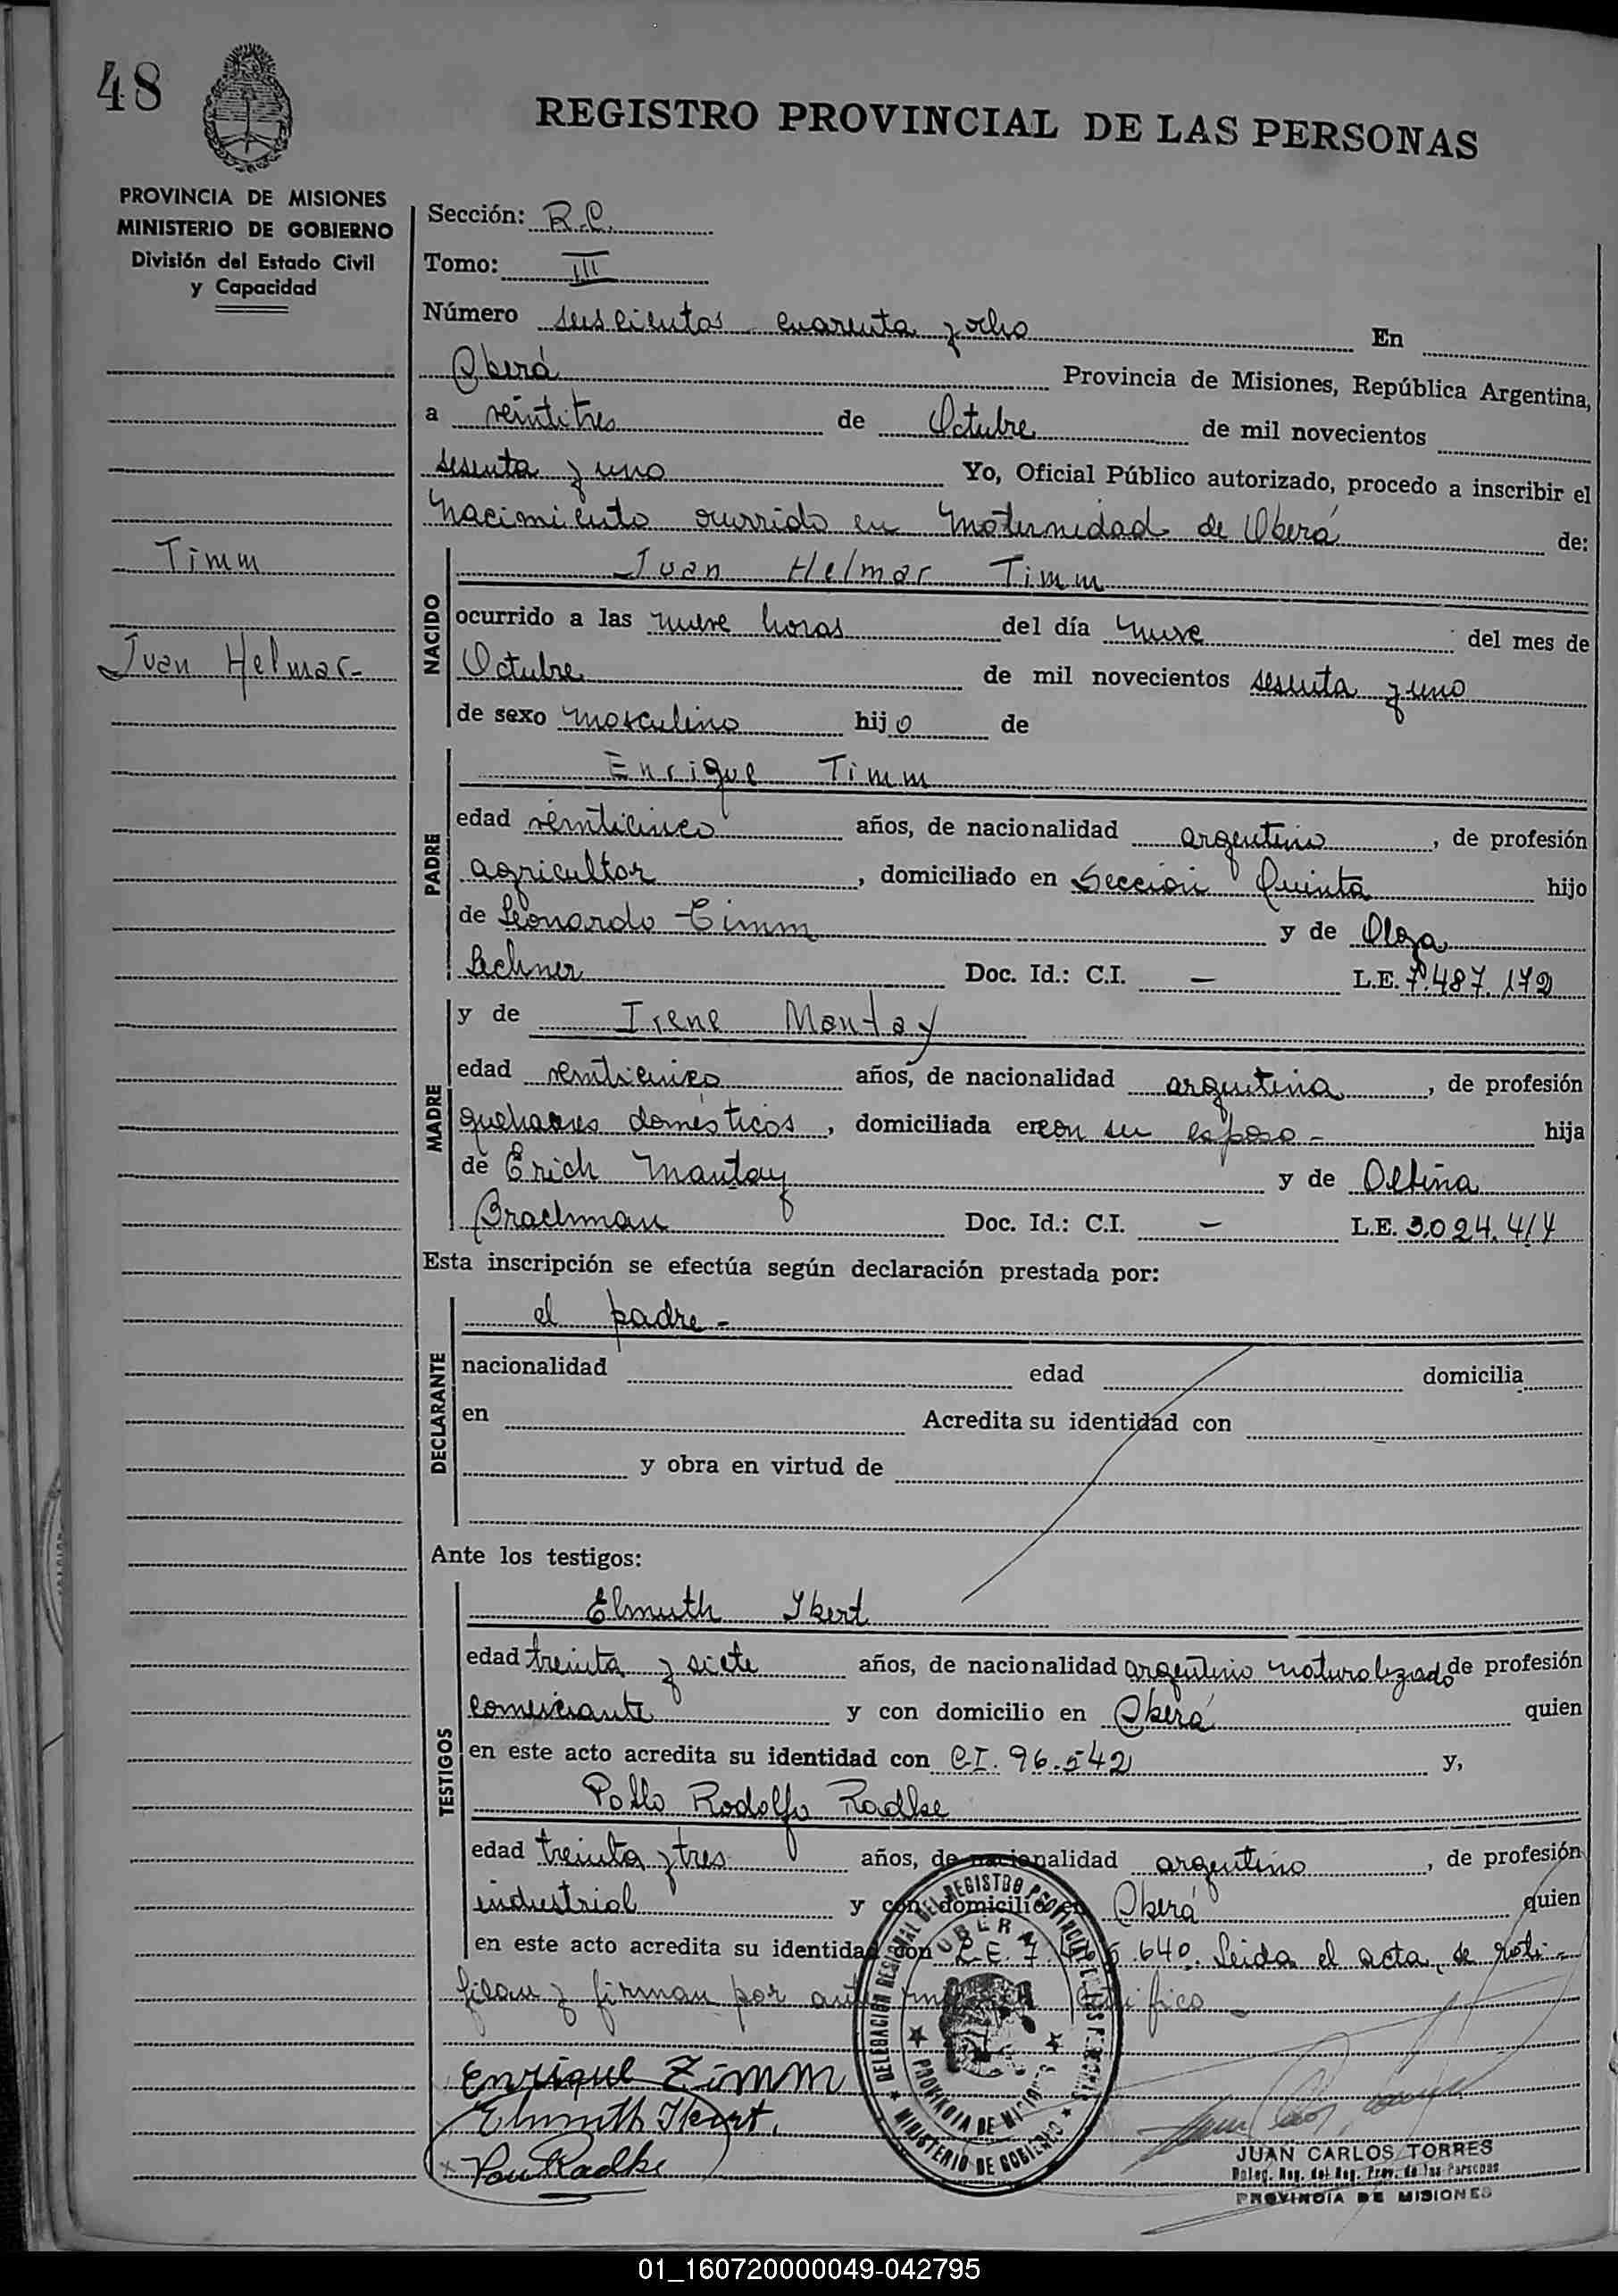 48
REGISTRO PROVINCIAL DE LAS PERSONAS
PROVINCIA DE MISIONES
MINISTERIO DE GOBIERNO
División del Estado Civil
y Capacidad
Timm
Juan Helmar-
Sección: R.C.
Tomo: III
Número seiscientos cuarenta y ocho En
Oberá Provincia de Misiones, República Argentina,
a veintitres de Octubre de mil novecientos
sesenta y uno Yo, Oficial Público autorizado, procedo a inscribir el
nacimiento ocurrido en Maternidad de Oberá de:
NACIDO
Juan Helmar Timm
ocurrido a las nueve horas del día nueve del mes de
Octubre de mil novecientos sesenta y uno
de sexo masculino hijo de
PADRE
Enrique Timm
edad veinticinco años, de nacionalidad argentino, de profesión
agricultor, domiciliado en Sección Quinta hijo
de Leonardo Timm y de Olga
Lechner Doc. Id.: C.I. — L.E. 7.487.172
MADRE
y de Irene Mantay
edad veinticinco años, de nacionalidad argentina, de profesión
quehaceres domésticos, domiciliada en con su esposo - hija
de Erich Mantay y de
Brachman Doc. Id.: C.I. — L.E. 3.024.414
Esta inscripción se efectúa según declaración prestada por:
DECLARANTE
el padre -
nacionalidad edad domicilia
en Acredita su identidad con
y obra en virtud de
Ante los testigos:
TESTIGOS
Elmuth Ikert
edad treinta y siete años, de nacionalidad argentino naturalizado de profesión
comerciante y con domicilio en Oberá quien
en este acto acredita su identidad con C.I. 96.542 y,
Pablo Rodolfo Radke
edad treinta y tres años, de nacionalidad argentino, de profesión
industrial y con domicilio en Oberá quien
en este acto acredita su identidad con L.E. 7. 640. Leida el acta, se rati-
fican y firman por ante mi certifico -
DELEGACION REGIONAL DEL REGISTRO PROVINCIAL DE LAS PERSONAS
OBERA
PROVINCIA DE MISIONES
MINISTERIO DE GOBIERNO
Enrique Timm
Elmuth Ikert.
Radke
JUAN CARLOS TORRES
Deleg. Reg. del Reg. Prov. de las Personas
PROVINCIA DE MISIONES
01_160720000049-042795